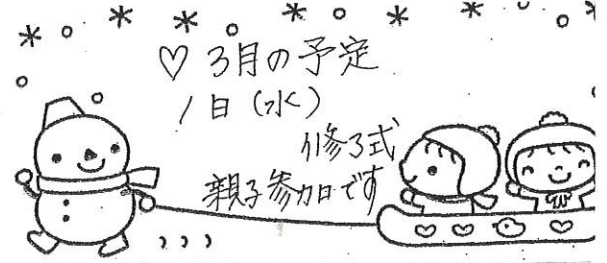 ♡ 3月の予定
1日(水)
修了式
親子参加です